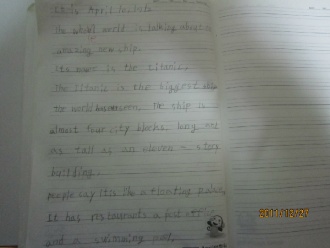 April 10, 1912
The whole world is talking about an
amazing new ship.
Its name is the Titanic.
The Titanic is the biggest
the world has seen. The ship is
almost four city blocks long and
as tall as an eleven-story
building.
People say it's like a floating palace.
It has restaurants a post
and a swimming pool.
2011/12/27